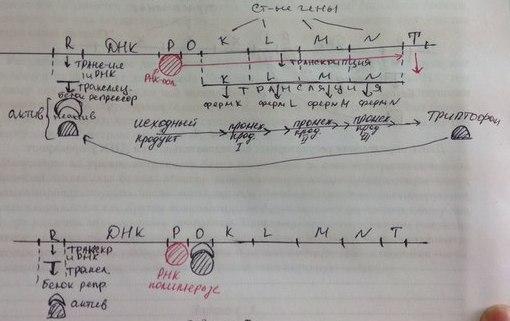 ст-ые гены
R ДНК P O K L M N T
транс-ция
иРНК
транскрипция
РНК-пол.
трансляц.
белок репрессор
K трансляция
ферм K ферм L ферм M ферм N
актив
неактив
исходный продукт
промеж прод I
промеж прод II
промеж прод III
триптофан
R ДНК P O K L M N T
транскр
иРНК
трансл.
белок репр.
актив
РНК
полимераза